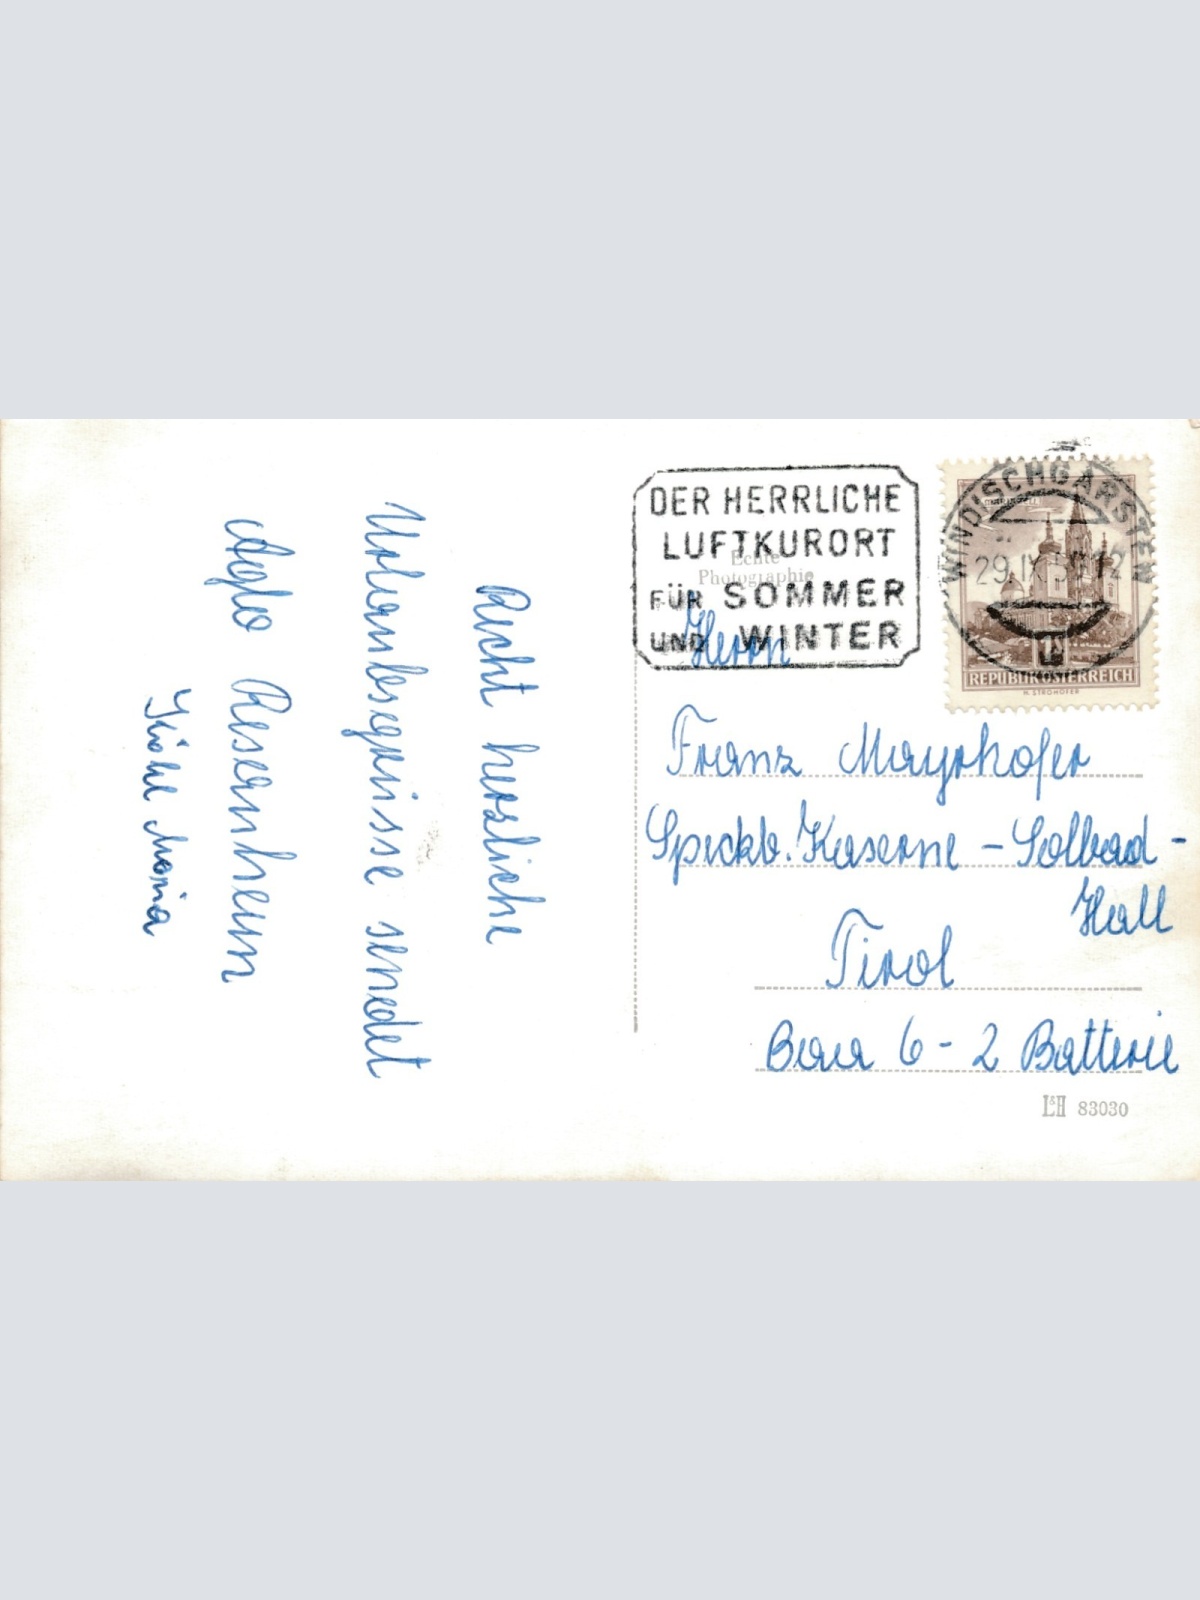 Recht herzliche
Urlaubsgrüsse sendet
DER HERRLICHE
LUFTKURORT
FÜR SOMMER
UND WINTER
Echte
Photographie
WINDISCHGARSTEN
29.IX
12
MARIAZELL
REPUBLIK ÖSTERREICH
H. STROHOFER
Herrn
Franz Mayrhofer
Speckb. Kaserne – Solbad -
Hall
Tirol
Baua 6 - 2 Batterie
L&H 83030